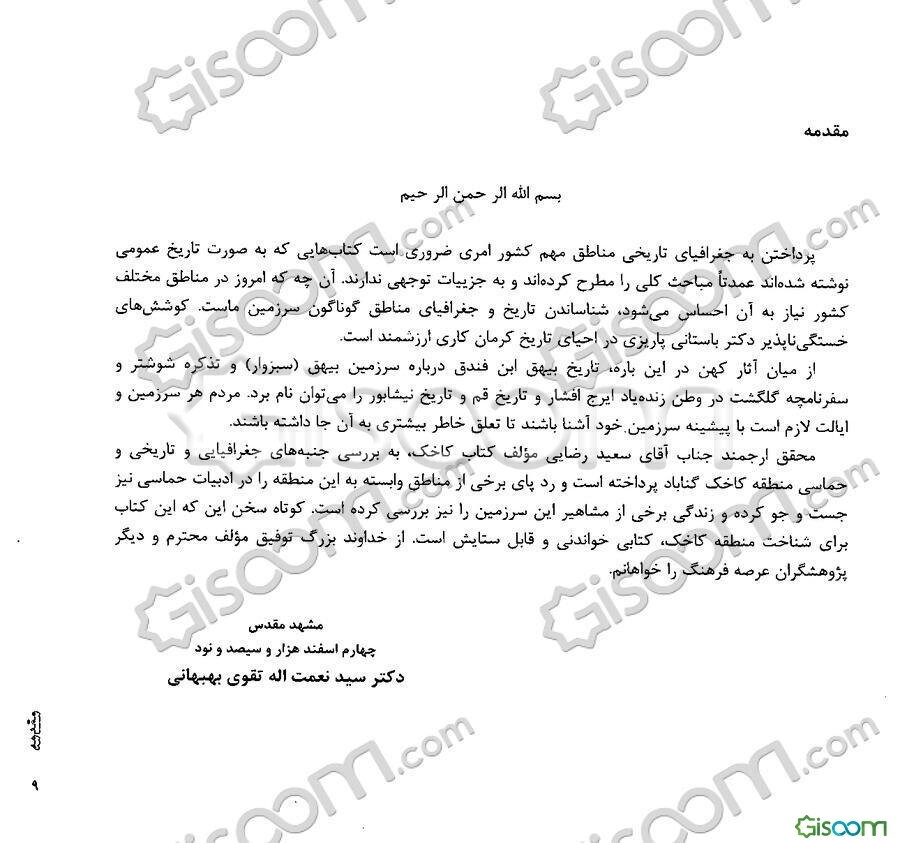 مقدمه
بسم الله الر حمن الر حیم
پرداختن به جغرافیای تاریخی مناطق مهم کشور امری ضروری است کتاب‌هایی که به صورت تاریخ عمومی
نوشته شده‌اند عمدتاً مباحث کلی را مطرح کرده‌اند و به جزییات توجهی ندارند. آن چه که امروز در مناطق مختلف
کشور نیاز به آن احساس می‌شود، شناساندن تاریخ و جغرافیای مناطق گوناگون سرزمین ماست. کوشش‌های
خستگی‌ناپذیر دکتر باستانی پاریزی در احیای تاریخ کرمان کاری ارزشمند است.
از میان آثار کهن در این باره، تاریخ بیهق ابن فندق درباره سرزمین بیهق (سبزوار) و تذکره شوشتر و
سفرنامچه گلگشت در وطن زنده‌یاد ایرج افشار و تاریخ قم و تاریخ نیشابور را می‌توان نام برد. مردم هر سرزمین و
ایالت لازم است با پیشینه سرزمین خود آشنا باشند تا تعلق خاطر بیشتری به آن جا داشته باشند.
محقق ارجمند جناب آقای سعید رضایی مؤلف کتاب کاخک، به بررسی جنبه‌های جغرافیایی و تاریخی و
حماسی منطقه کاخک گناباد پرداخته است و رد پای برخی از مناطق وابسته به این منطقه را در ادبیات حماسی نیز
جست و جو کرده و زندگی برخی از مشاهیر این سرزمین را نیز بررسی کرده است. کوتاه سخن این که این کتاب
برای شناخت منطقه کاخک، کتابی خواندنی و قابل ستایش است. از خداوند بزرگ توفیق مؤلف محترم و دیگر
پژوهشگران عرصه فرهنگ را خواهانم.
مشهد مقدس
چهارم اسفند هزار و سیصد و نود
دکتر سید نعمت اله تقوی بهبهانی
مقدمه
۹
Gisoom
Gisoom.com
Gisoom.com
Gisoom.com
Gisoom.com
Gisoom.com
Gisoom.com
Gisoom.com
Gisoom.com
Gisoom